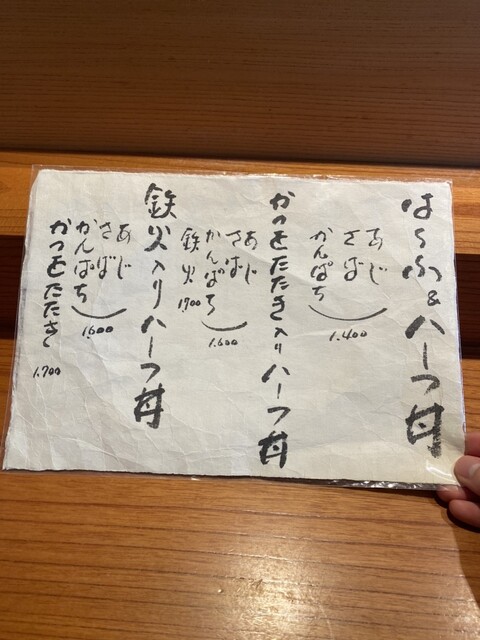 はーふ&ハーフ丼
あじ
さば
かんぱち
1.400
かつをたたき入りハーフ丼
あじ
さば
かんぱち
1.600
鉄火
1700
鉄火入りハーフ丼
あじ
さば
かんぱち
1.600
かつをたたき
1.700